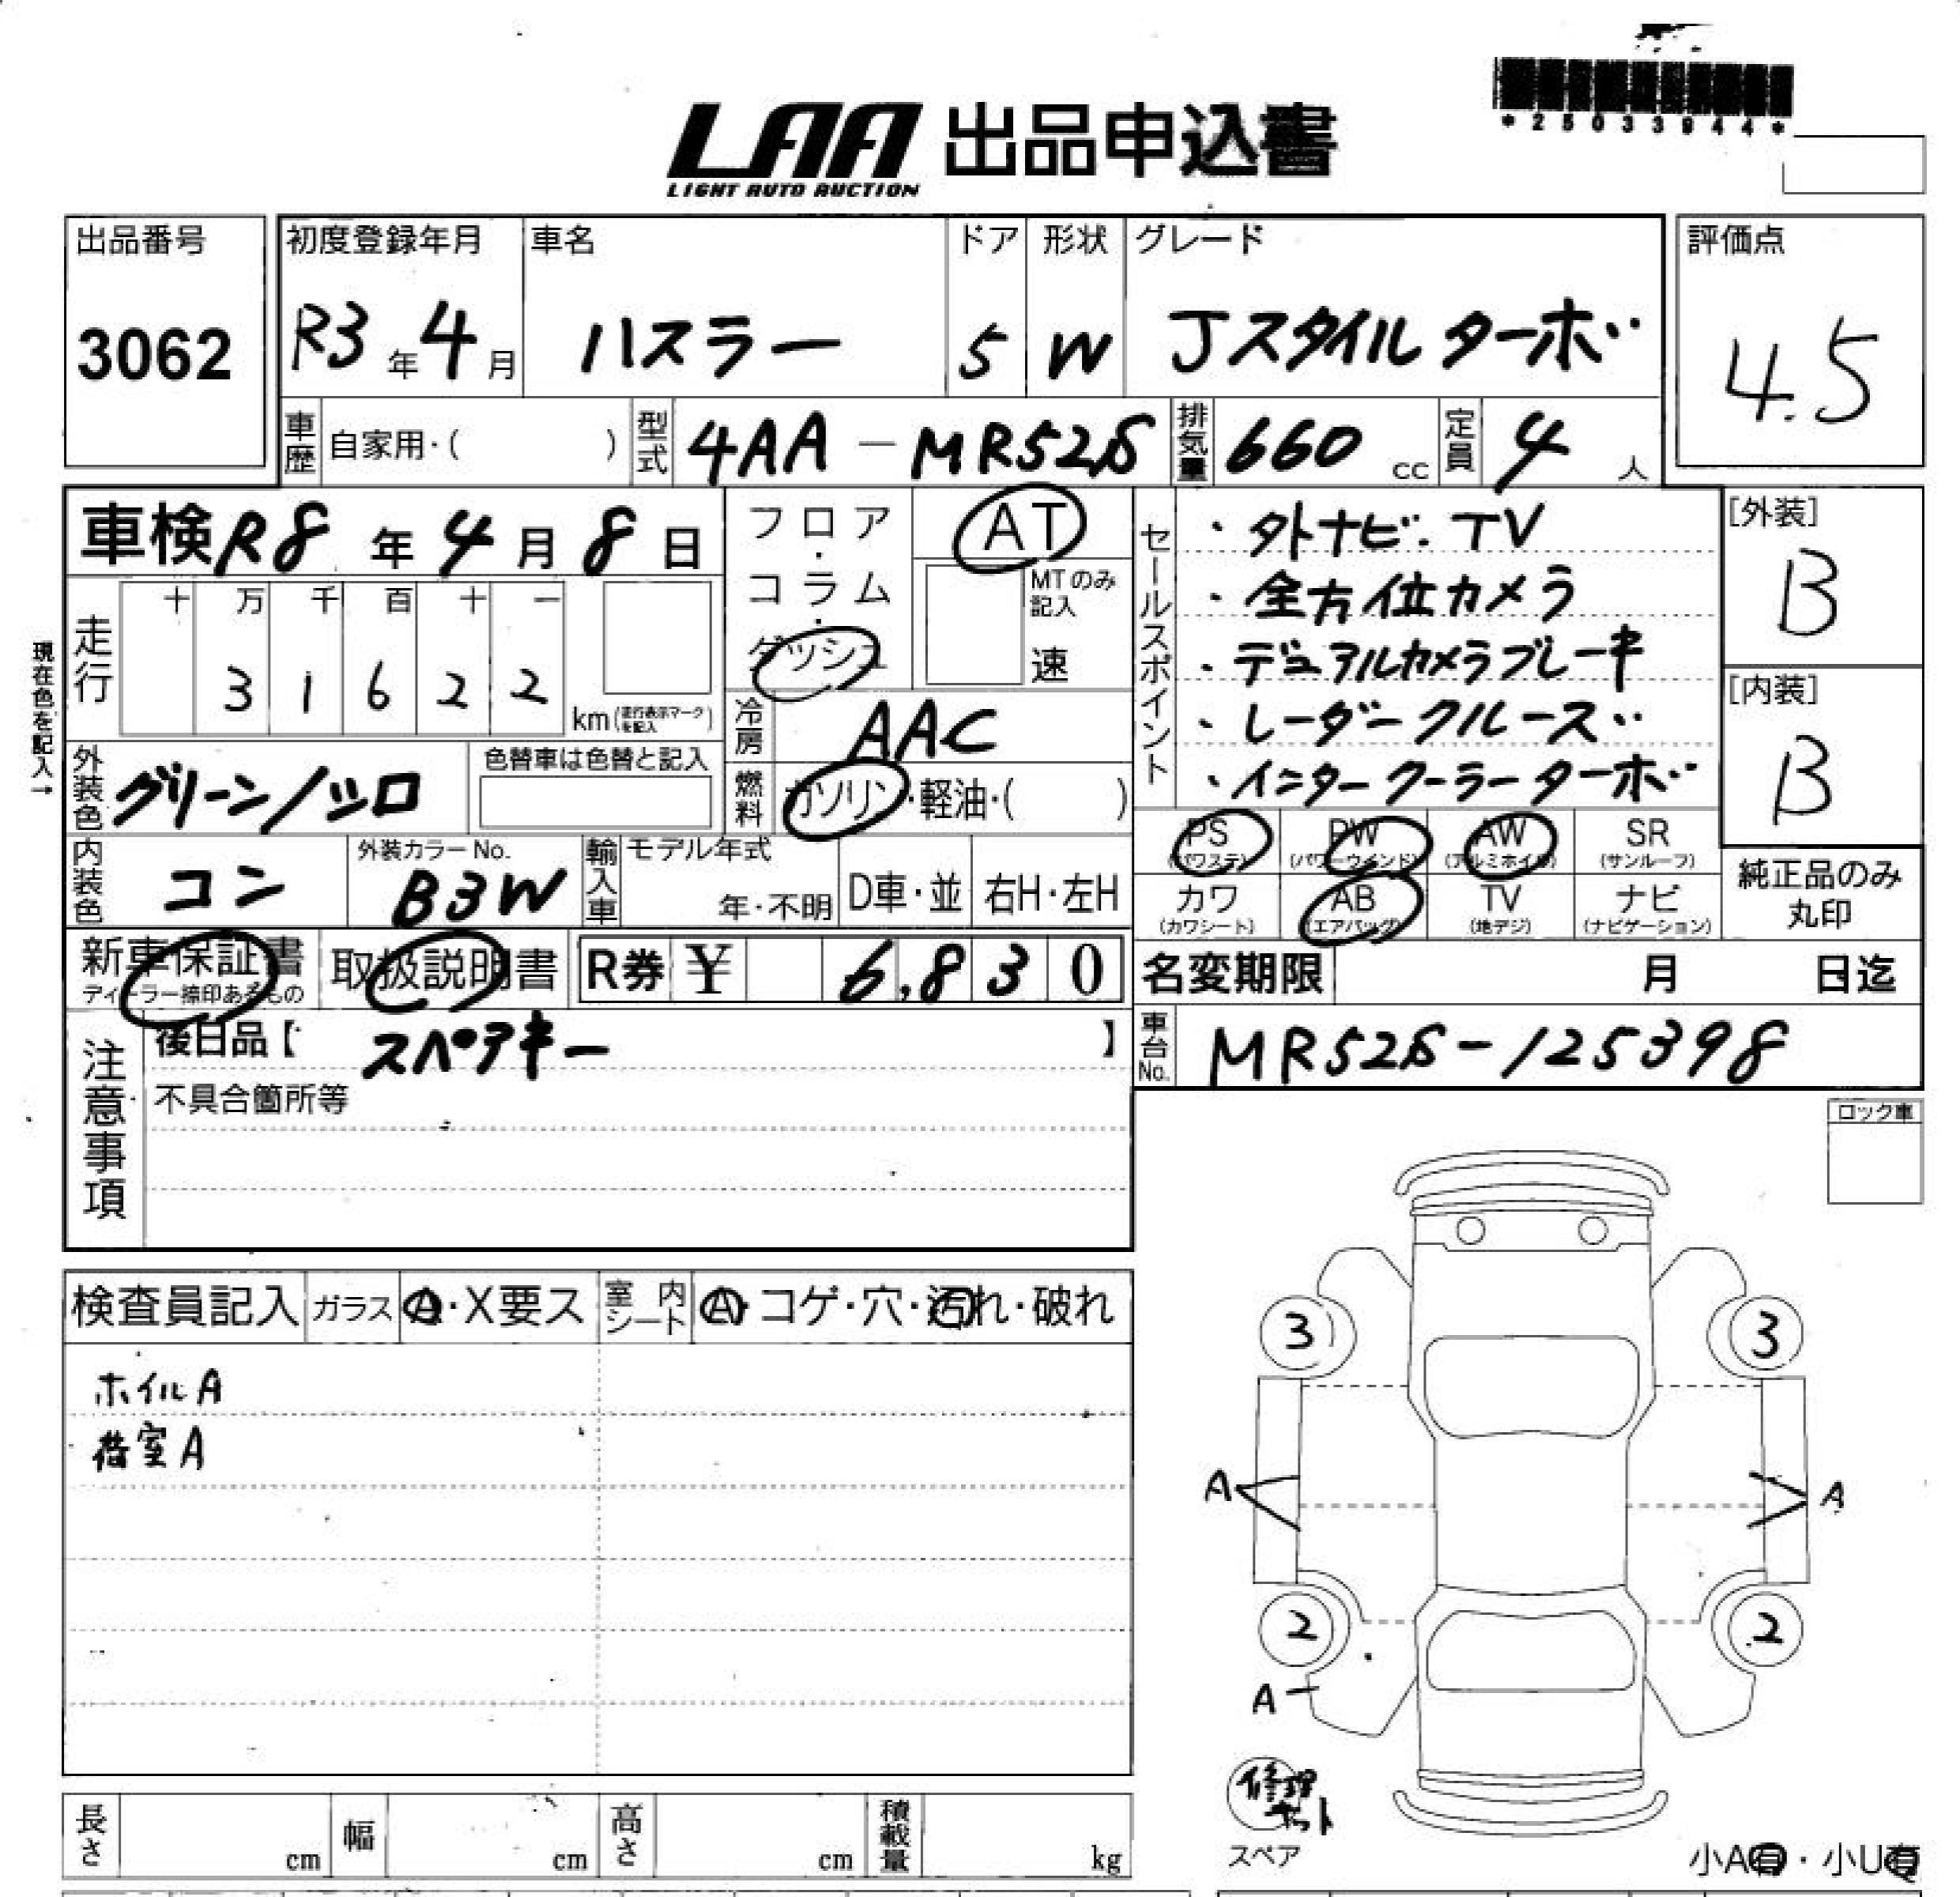 *25033944*
LAA 出品申込書
LIGHT AUTO AUCTION
出品番号 初度登録年月 車名 ドア 形状 グレード 評価点
3062 R3年4月 ハスラー 5 W Jスタイル ターボ 4.5
車歴 自家用・( ) 型式 4AA-MR52S 排気量 660cc 定員 4人
車検 R8年4月8日 フロア・コラム・ダッシュ AT
MTのみ記入 速
セールスポイント
・外ナビ. TV
・全方位カメラ
・デュアルカメラブレーキ
・レーダークルーズ
・インタークーラーターボ
[外装]
B
[内装]
B
現在色を記入→
走行 十 万 千 百 十 一
3 1 6 2 2 km (走行表示マークを記入)
冷房 AAC
外装色 グリーン/シロ 色替車は色替と記入
燃料 ガソリン・軽油・( )
PS (パワステ) PW (パワーウインド) AW (アルミホイル) SR (サンルーフ)
カワ (カワシート) AB (エアバッグ) TV (地デジ) ナビ (ナビゲーション)
純正品のみ
丸印
内装色 コン 外装カラーNo. B3W 輸入車 モデル年式 年・不明 D車・並 右H・左H
新車保証書 取扱説明書 R券 ¥ 6,830
ディーラー捺印あるもの
名変期限 月 日迄
車台No. MR52S-125398
注意事項
後日品【 スペアキー 】
不具合箇所等
ロック車
検査員記入 ガラス A・X要ス 室内シート A・コゲ・穴・汚れ・破れ
ホイルA
荷室A
3 3
A A
2 2
A
修理キット
スペア
小A有・小U有
長さ cm 幅 cm 高さ cm 積載量 kg